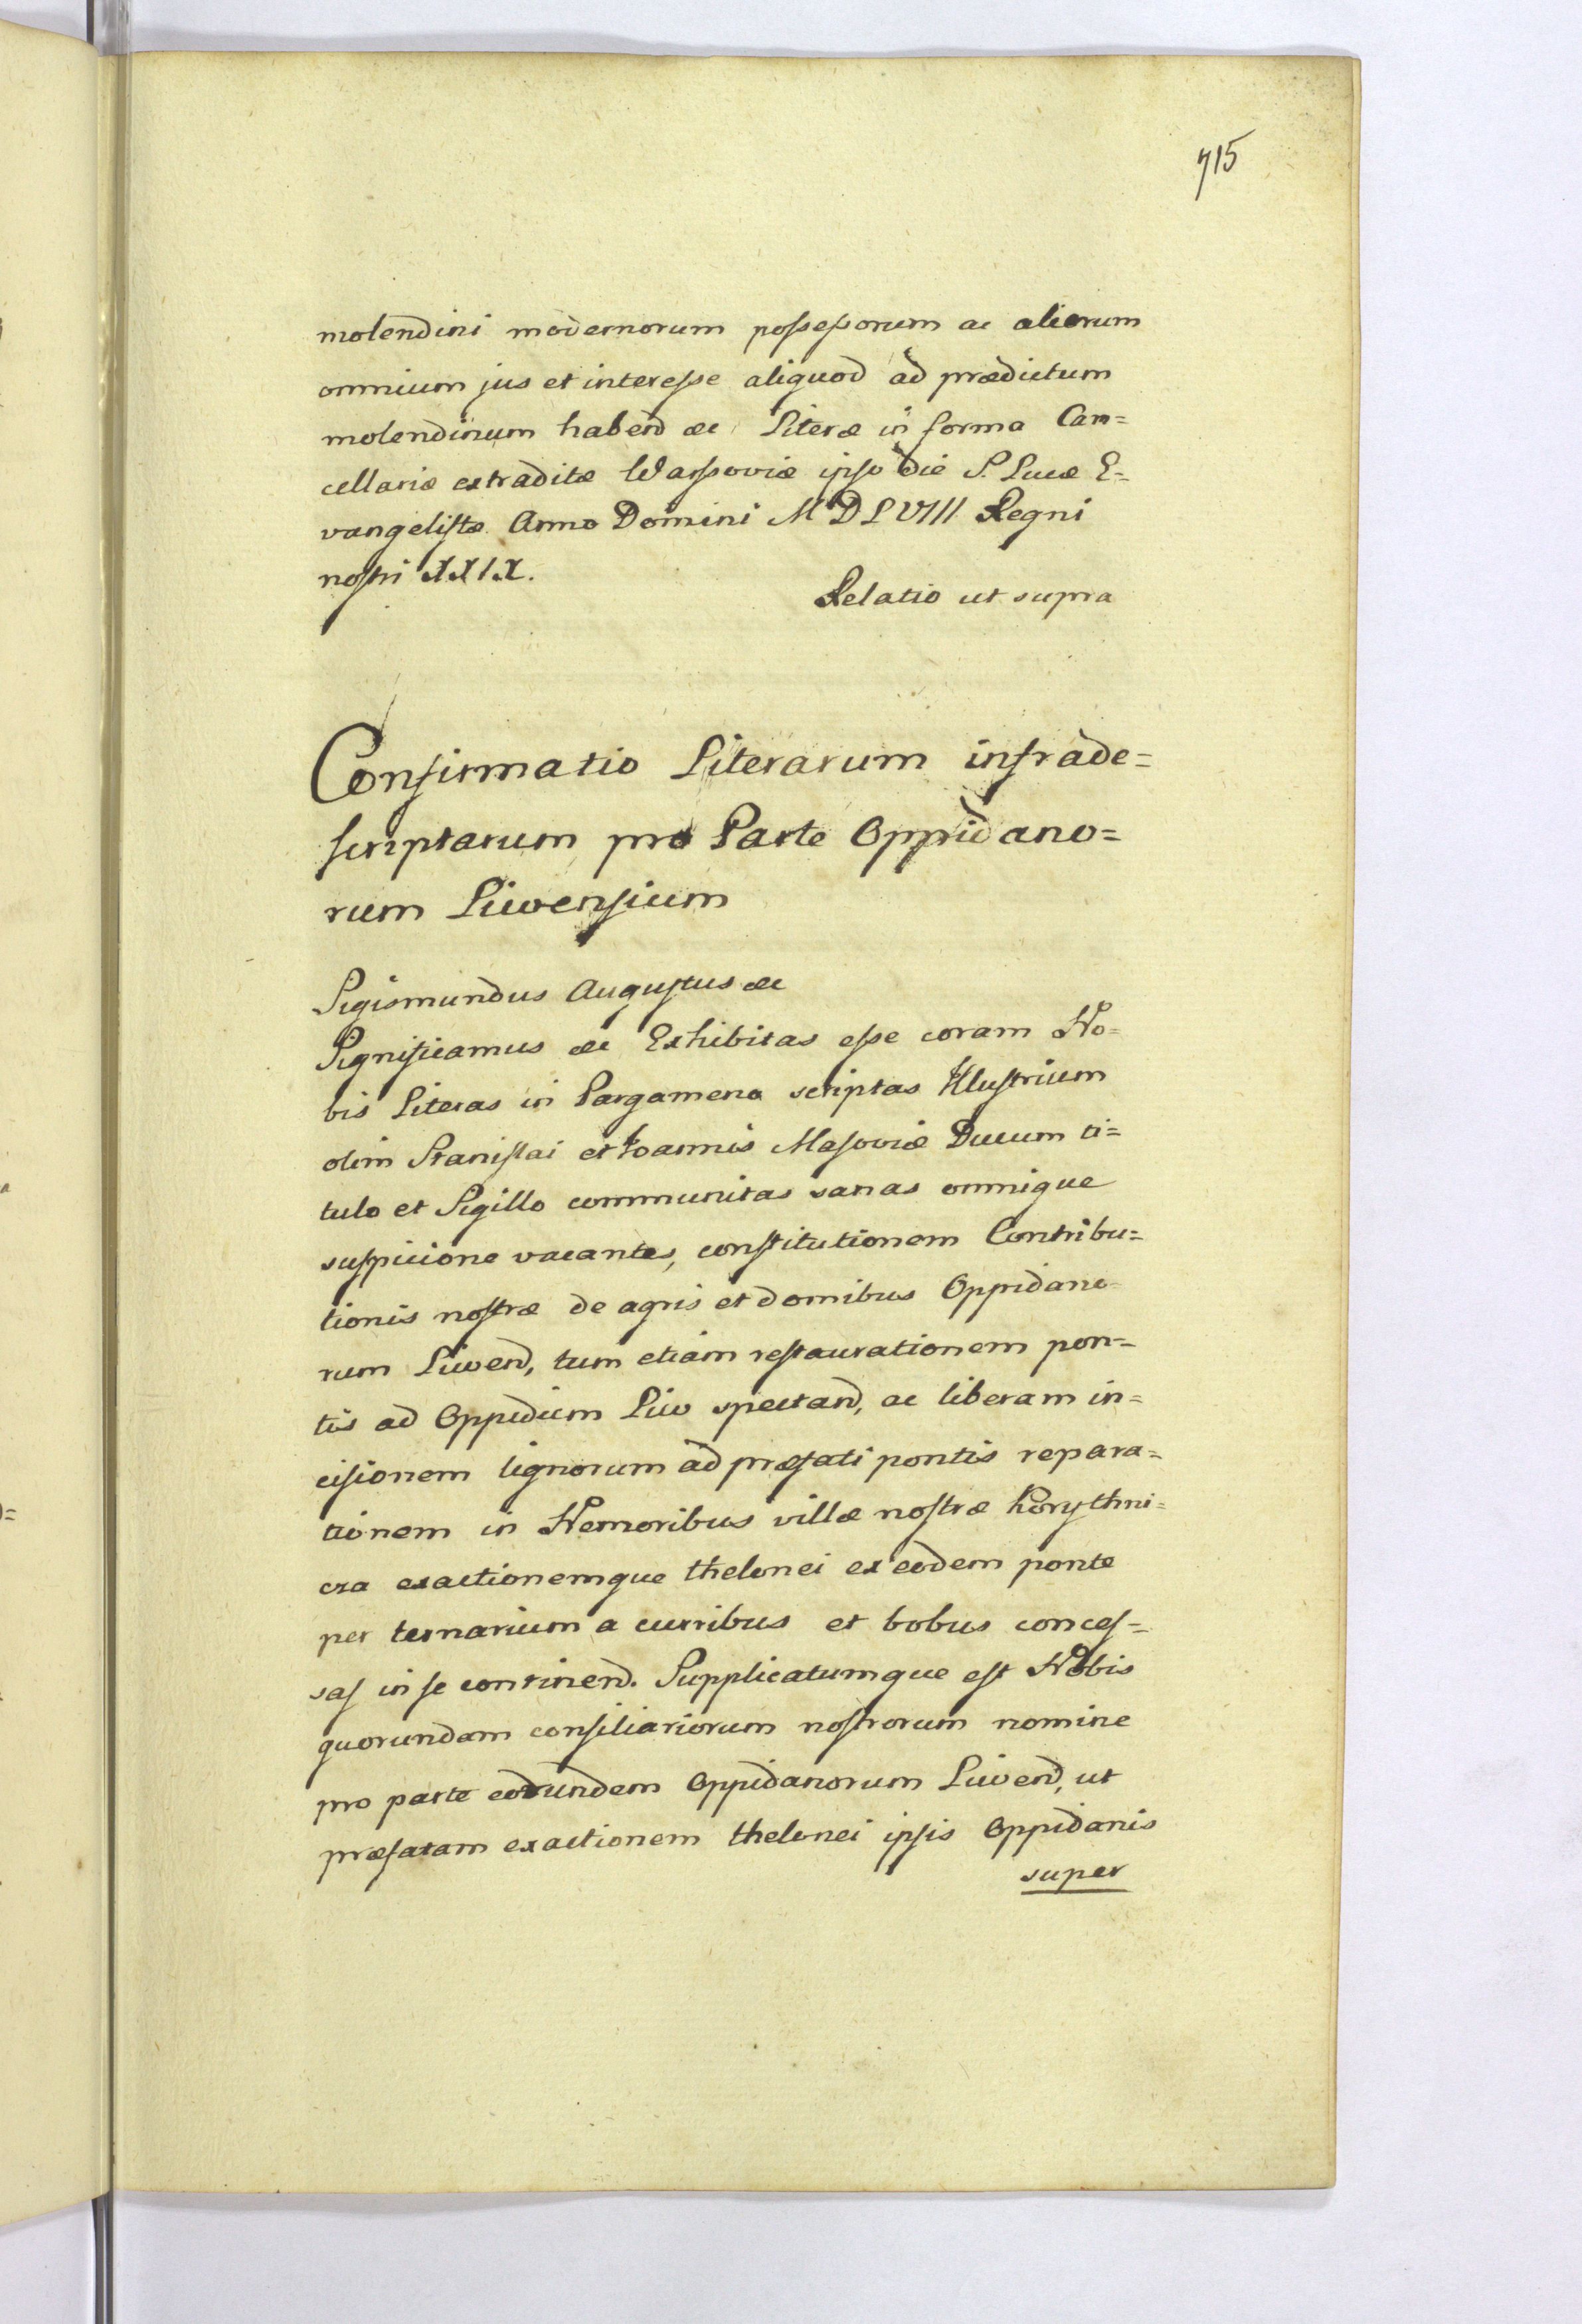 715
molendini modernorum possessorum ac aliorum
omnium jus et interesse aliquod ad prædictum
molendinum habend &c Literæ in forma Can=
cellariæ extraditæ Warssoviæ ipso die S. Lucæ E=
vangelistæ Anno Domini MDLVIII Regni
nostri XXIX.
Relatio ut supra
Confirmatio Literarum infrade=
scriptarum pro Parte Oppidano=
rum Liwensium
Sigismundus Augustus &c
Significamus &c Exhibitas esse coram No=
bis Literas in Pargameno scriptas Illustrium
olim Stanislai et Joannis Masoviæ Ducum ti=
tulo et Sigillo communitas sanas omnique
suspicione vacantes, constitutionem Contribu=
tionis nostræ de agris et domibus Oppidano=
rum Liwend, tum etiam restaurationem pon=
tis ad Oppidum Liw spectand, ac liberam in=
cisionem lignorum ad præfati pontis repara=
tionem in Nemoribus villæ nostræ Korythni=
cza exactionemque thelonei ex eodem ponte
per ternarium a curribus et bobus conces=
sas in se continend. Supplicatumque est Nobis
quorundam consiliariorum nostrorum nomine
pro parte eorundem Oppidanorum Liwend, ut
præfatam exactionem thelonei ipsis Oppidanis
super